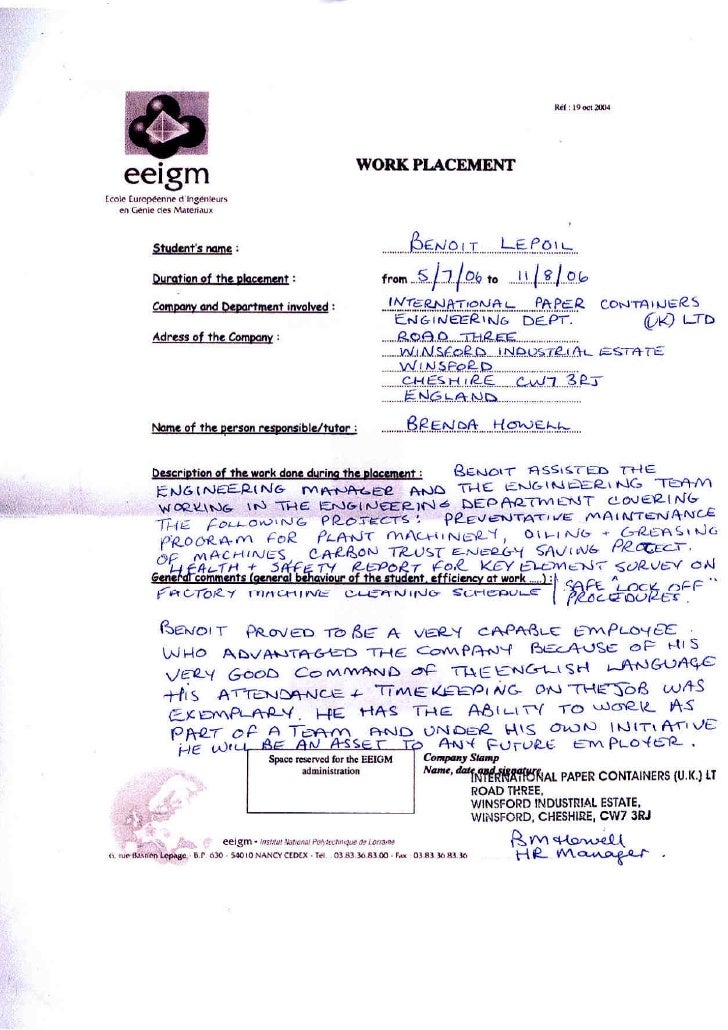 Réf : 19 oct 2004
eeigm
Ecole Européenne d'Ingénieurs
en Génie des Matériaux
WORK PLACEMENT
Student's name : BENOIT LEPOIL
Duration of the placement : from 5/7/06 to 11/8/06
Company and Department involved : INTERNATIONAL PAPER CONTAINERS
ENGINEERING DEPT. (UK) LTD
Adress of the Company : ROAD THREE
WINSFORD INDUSTRIAL ESTATE
WINSFORD
CHESHIRE CW7 3RJ
ENGLAND
Name of the person responsible/tutor : BRENDA HOWELL
Description of the work done during the placement : BENOIT ASSISTED THE
ENGINEERING MANAGER AND THE ENGINEERING TEAM
WORKING IN THE ENGINEERING DEPARTMENT COVERING
THE FOLLOWING PROJECTS: PREVENTATIVE MAINTENANCE
PROGRAM FOR PLANT MACHINERY, OILING + GREASING
OF MACHINES, CARBON TRUST ENERGY SAVING PROJECT.
HEALTH + SAFETY REPORT FOR KEY ELEMENT SURVEY ON
General comments (general behaviour of the student, efficiency at work .....) : SAFE "LOCK OFF"
FACTORY MACHINE CLEANING SCHEDULE PROCEDURES.
BENOIT PROVED TO BE A VERY CAPABLE EMPLOYEE
WHO ADVANTAGED THE COMPANY BECAUSE OF HIS
VERY GOOD COMMAND OF THE ENGLISH LANGUAGE
HIS ATTENDANCE + TIMEKEEPING ON THE JOB WAS
EXEMPLARY. HE HAS THE ABILITY TO WORK AS
PART OF A TEAM AND UNDER HIS OWN INITIATIVE
HE WILL BE AN ASSET TO ANY FUTURE EMPLOYER.
Space reserved for the EEIGM
administration
Company Stamp
Name, date and signature
INTERNATIONAL PAPER CONTAINERS (U.K.) LT
ROAD THREE,
WINSFORD INDUSTRIAL ESTATE,
WINSFORD, CHESHIRE, CW7 3RJ
BM Howell
HR Manager.
eeigm - Institut National Polytechnique de Lorraine
6, rue Bastien Lepage - B.P. 630 - 54010 NANCY CEDEX - Tel. 03.83.36.83.00 - Fax 03.83.36.83.36